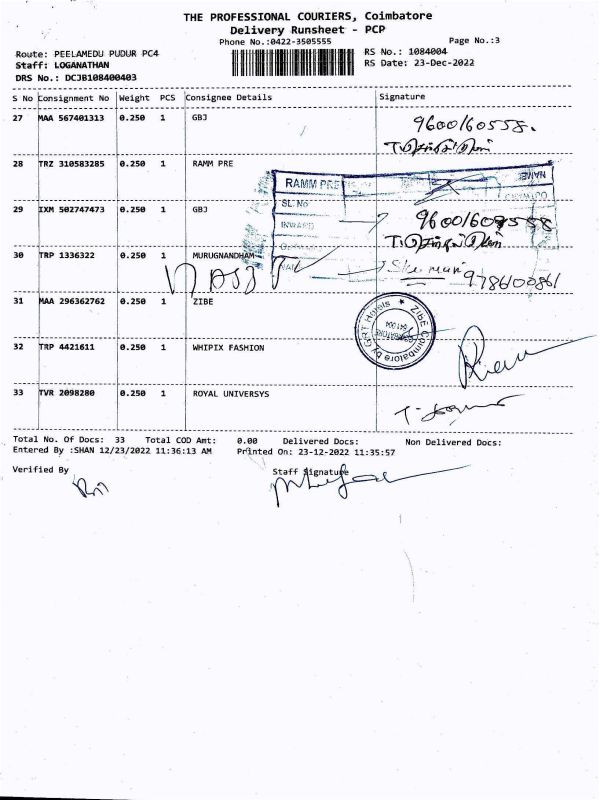 THE PROFESSIONAL COURIERS, Coimbatore
Delivery Runsheet - PCP
Phone No.:0422-3505555
Page No.:3
Route: PEELAMEDU PUDUR PC4
RS No.: 1084004
Staff: LOGANATHAN
RS Date: 23-Dec-2022
DRS No.: DCJB108400403
S No Consignment No Weight PCS Consignee Details Signature
27 MAA 567401313 0.250 1 GBJ
9600160558.
28 TRZ 310583285 0.250 1 RAMM PRE
RAMM PRE
SL. No
29 IXM 502747473 0.250 1 GBJ
INWARD
30 TRP 1336322 0.250 1 MURUGNANDHAM
9786100861
31 MAA 296362762 0.250 1 ZIBE
ZIBE Coimbatore by GRT Hotels
COIMBATORE
641 004
32 TRP 4421611 0.250 1 WHIPIX FASHION
33 TVR 2098280 0.250 1 ROYAL UNIVERSYS
Total No. Of Docs: 33 Total COD Amt: 0.00 Delivered Docs: Non Delivered Docs:
Entered By :SHAN 12/23/2022 11:36:13 AM Printed On: 23-12-2022 11:35:57
Verified By Staff Signature